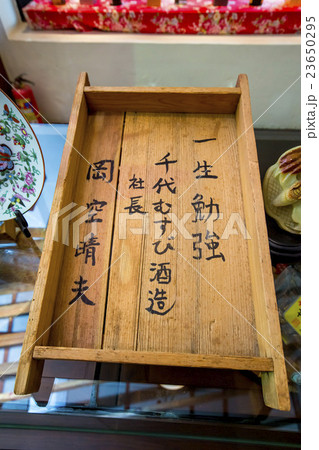 一生勉強
千代むすび酒造
社長
岡空晴夫
PIXTA
pixta.jp - 23650295